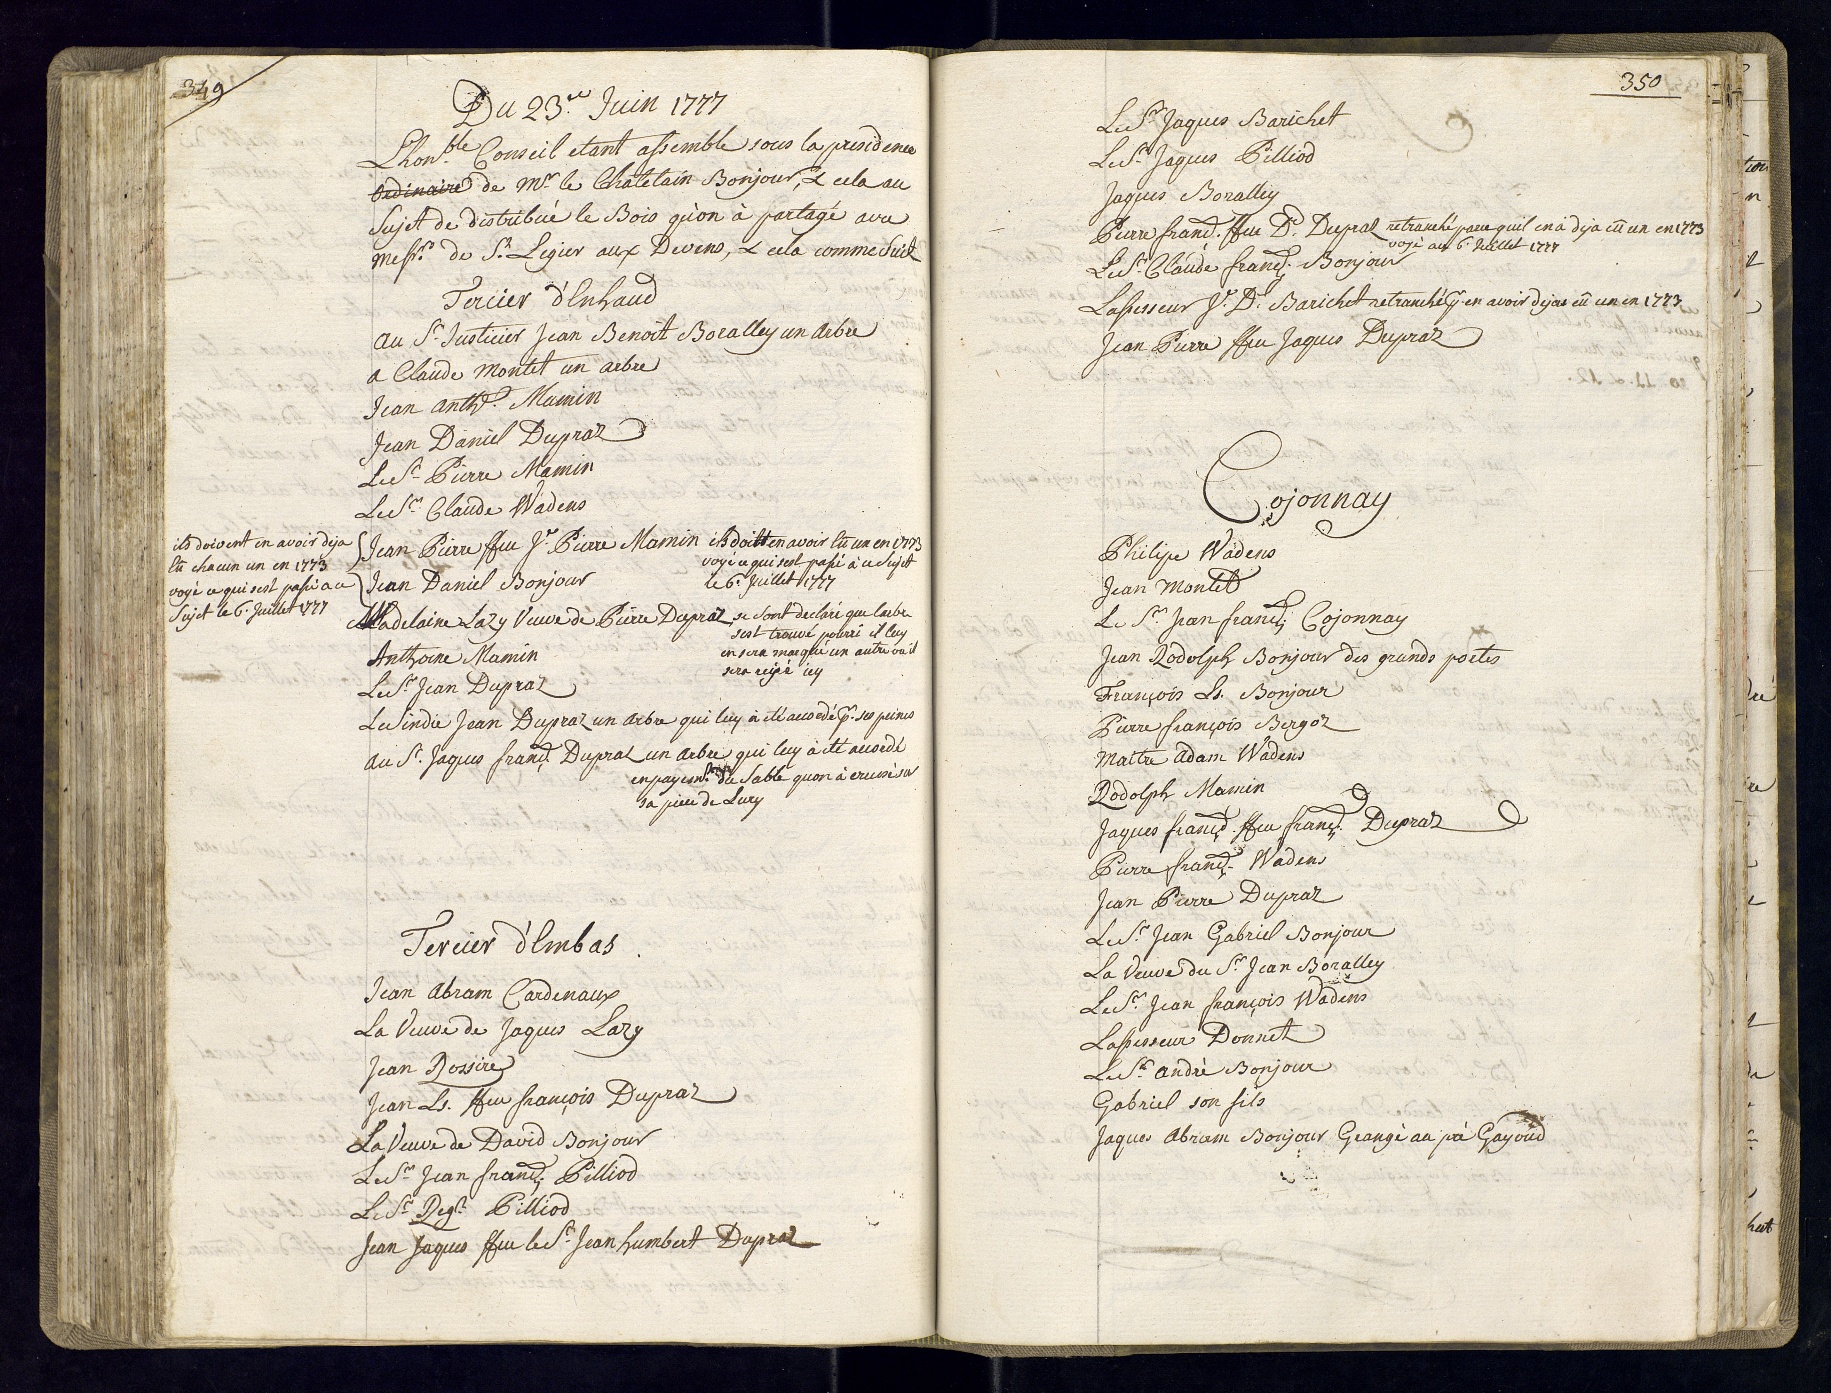 349
Du 23.me Juin 1777
L'hon.ble Conseil etant assemble sous la presidence
ordinaire de Mr le Chatelain Bonjour, & cela au
Sujet de distribué le Bois qu'on à partagé avec
Mess.rs de St. Legier aux Devens, & cela comme Suit
Tercier d'Enhaud
au Sr. Justicier Jean Benoit Boralley un arbre
a Claude Montet un arbre
Jean Anth.e Mamin
Jean Daniel Dupraz
Le Sr Pierre Mamin
Le Sr Claude Wadens
ils doivent en avoir deja
eû chacun un en 1773
voyé ce qui s'est passé a ce
Sujet le 6e. Juillet 1777
Jean Pierre ffeu Je. Pierre Mamin il doitt en avoir eu un en 1773
voyé ce qui s'est passé à ce Sujet
le 6e. Juillet 1777
Jean Daniel Bonjour
Madelaine Lazy Veuve de Pierre Dupraz, se sont declaré que l'arbre
s'est trouvé pourri il luy
en sera marqué un autre ou il
sera icy
Anthoine Mamin
Le Sr Jean Dupraz
Le Sindic Jean Dupraz un arbre qui luy à été accordé p. ses peines
au Sr. Jaques franç. Dupraz un arbre qui luy à été accordé
en payem.t du Sable qu'on à creusé sur
sa piece de Lucy
Tercier d'Embas
Jean Abram Cardenaux
La Veuve de Jaques Lazy
Jean Rossire
Jean Ls. ffeu françois Dupraz
La Veuve de David Bonjour
Le Sr Jean franç. Pilliod
Le Sr Reg.t Pilliod
Jean Jaques ffeu le Sr. Jean humbert Dupraz
350
Le Sr Jaques Barichet
Le Sr Jaques Pilliod
Jaques Boralley
Pierre franç. ffeu Dd. Dupraz retranché parce quil en à deja eû un en 1773
voyé au 6e. Juillet 1777
Le Sr Claude franç. Bonjour
L'assesseur Je. Dl. Barichet retranché p. en avoir dejas eû un en 1773
Jean Pierre ffeu Jaques Dupraz
Cojonnay
Philipe Wadens
Jean Montet
Le Sr. Jean franç. Cojonnay
Jean Rodolph Bonjour des grands portes
François Ls. Bonjour
Pierre françois Bergoz
Maitre Adam Wadens
Rodolph Mamin
Jaques franç. ffeu franç. Dupraz
Pierre franç. Wadens
Jean Pierre Dupraz
Le Sr Jean Gabriel Bonjour
La Veuve du Sr Jean Boralley
Le Sr. Jean françois Wadens
L'assesseur Donnet
Le Sr André Bonjour
Gabriel son fils
Jaques Abram Bonjour Grangé au pré Gayoud